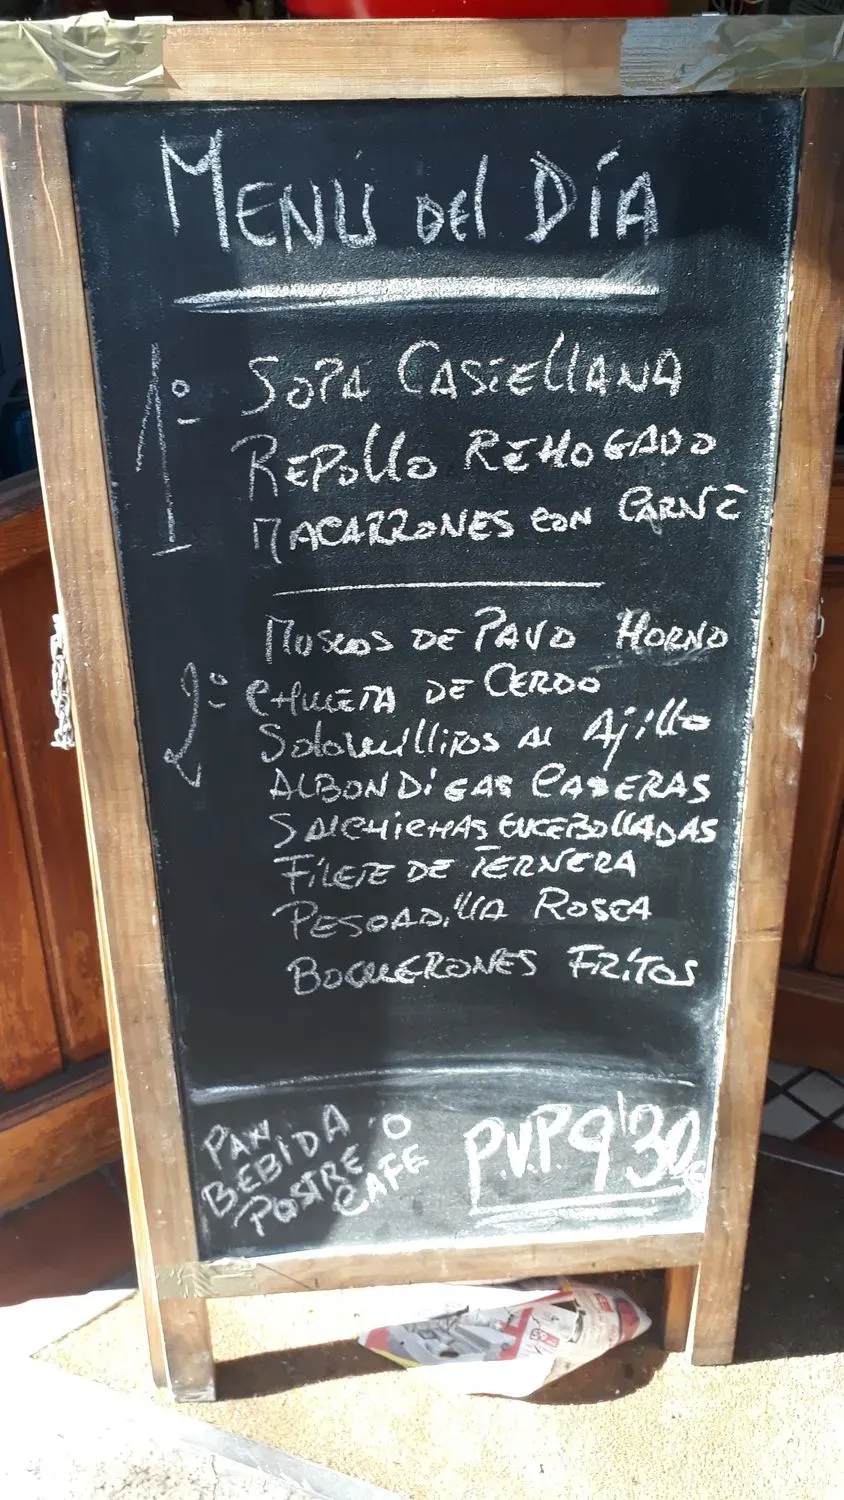 MENÚ DEL DÍA
1º SOPA CASTELLANA
REPOLLO REHOGADO
MACARRONES CON CARNE
MUSLOS DE PAVO HORNO
2º CHULETA DE CERDO
Solomillitos Al Ajillo
ALBONDIGAS CASERAS
SALCHICHAS ENCEBOLLADAS
FILETE DE TERNERA
PESCADILLA ROSCA
BOQUERONES FRITOS
PAN
BEBIDA
POSTRE O
CAFE
P.V.P. 9'30€